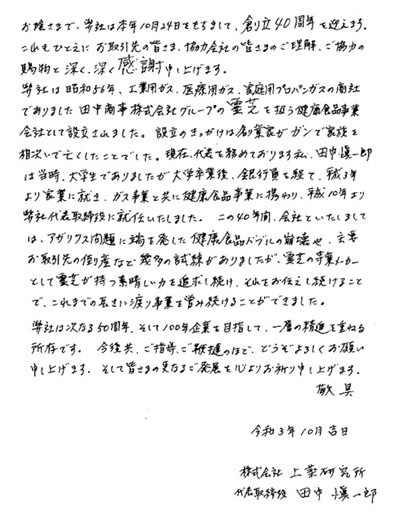 お陰さまで、弊社は本年10月24日をもちまして、創立40周年を迎えます。
これもひとえにお取引先の皆さま、協力会社の皆さまのご理解、ご協力の
賜物と深く、深く感謝申し上げます。
弊社は昭和56年、工業用ガス、医療用ガス、家庭用プロパンガスの商社
でありました田中商事株式会社グループの霊芝を扱う健康食品事業
会社として設立されました。設立のきっかけは創業家がガンで家族を
相次いで亡くしたことでした。現在、代表を務めております私、田中愼一郎
は当時、大学生でありましたが大学卒業後、銀行員を経て、平成3年
より家業に就き、ガス事業と共に健康食品事業に携わり、平成10年より
弊社代表取締役に就任いたしました。この40年間、会社といたしまして
は、アガリクス問題に端を発した健康食品バブルの崩壊や、主要
お取引先の倒産など幾多の試練がありましたが、霊芝の専業メーカー
として霊芝が持つ素晴しい力を追求し続け、それをお伝えし続けること
で、これまでの長きに渡り事業を営み続けることができました。
弊社は次なる50周年、そして100年企業を目指して、一層の精進を重ねる
所存です。今後共、ご指導、ご鞭撻のほど、どうぞよろしくお願い
申し上げます。そして皆さまの更なるご発展を心よりお祈り申し上げます。
敬具
令和3年10月吉日
株式会社 上薬研究所
代表取締役 田中愼一郎